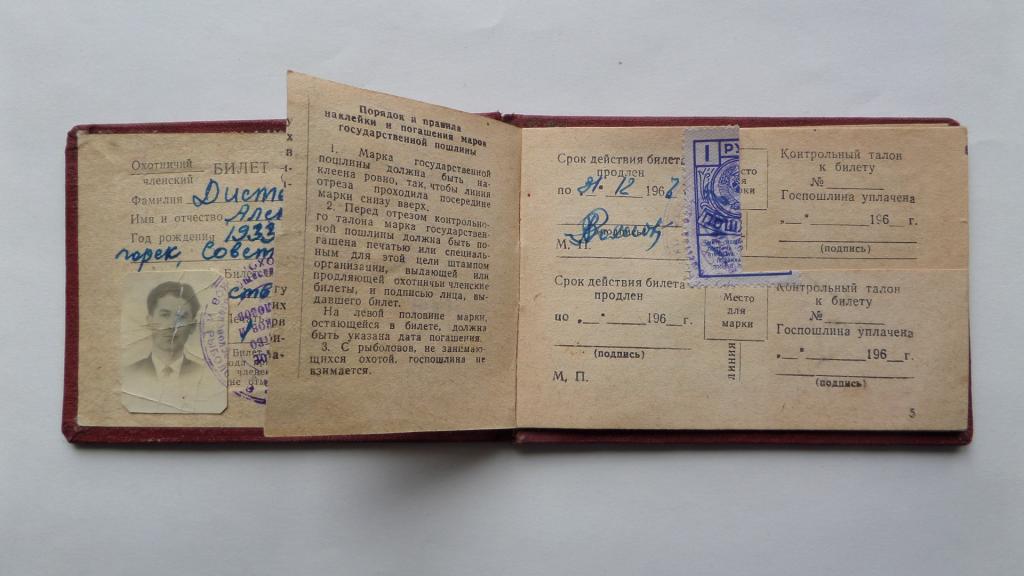 Охотничий
членский БИЛЕТ
Фамилия Дист
Имя и отчество Але
Год рождения 1933
горек, Советс
Билет
Порядок и правила
наклейки и погашения марок
государственной пошлины
1. Марка государственной
пошлины должна быть на-
клеена ровно, так, чтобы линия
отреза проходила посередине
марки снизу вверх.
2. Перед отрезом контрольно-
го талона марка государствен-
ной пошлины должна быть по-
гашена печатью или специаль-
ным для этой цели штампом
организации, выдающей или
продляющей охотничьи членские
билеты, и подписью лица, вы-
давшего билет.
На левой половине марки,
остающейся в билете, должна
быть указана дата погашения.
3. С рыболовов, не занимаю-
щихся охотой, госпошлина не
взимается.
Срок действия билета
продлен
по 31.12 1968
М. П.
1 РУ
ПОШ
Контрольный талон
к билету
№
Госпошлина уплачена
„ “ 196 г.
(подпись)
Срок действия билета
продлен
по „ “ 196 г.
(подпись)
М, П.
Место
для
марки
линия
Контрольный талон
к билету
№
Госпошлина уплачена
„ “ 196 г.
(подпись)
5